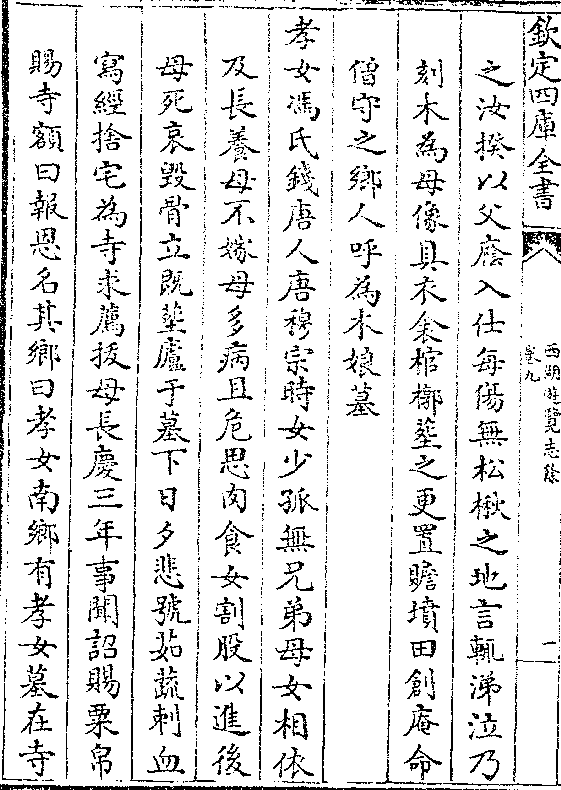 欽定四庫全書
西湖遊覽志餘
卷九
一
之汝揆以父廕入仕每傷無松楸之地言輒涕泣乃
刻木為母像具衣衾棺槨塟之更置贍墳田創庵命
僧守之鄉人呼為木娘墓
孝女馮氏錢唐人唐穆宗時女少孤無兄弟母女相依
及長養母不嫁母多病且危思肉食女割股以進後
母死哀毀骨立既塟廬于墓下日夕悲號茹蔬刺血
寫經捨宅為寺求薦拔母長慶三年事聞詔賜粟帛
賜寺額曰報恩名其鄉曰孝女南鄉有孝女墓在寺